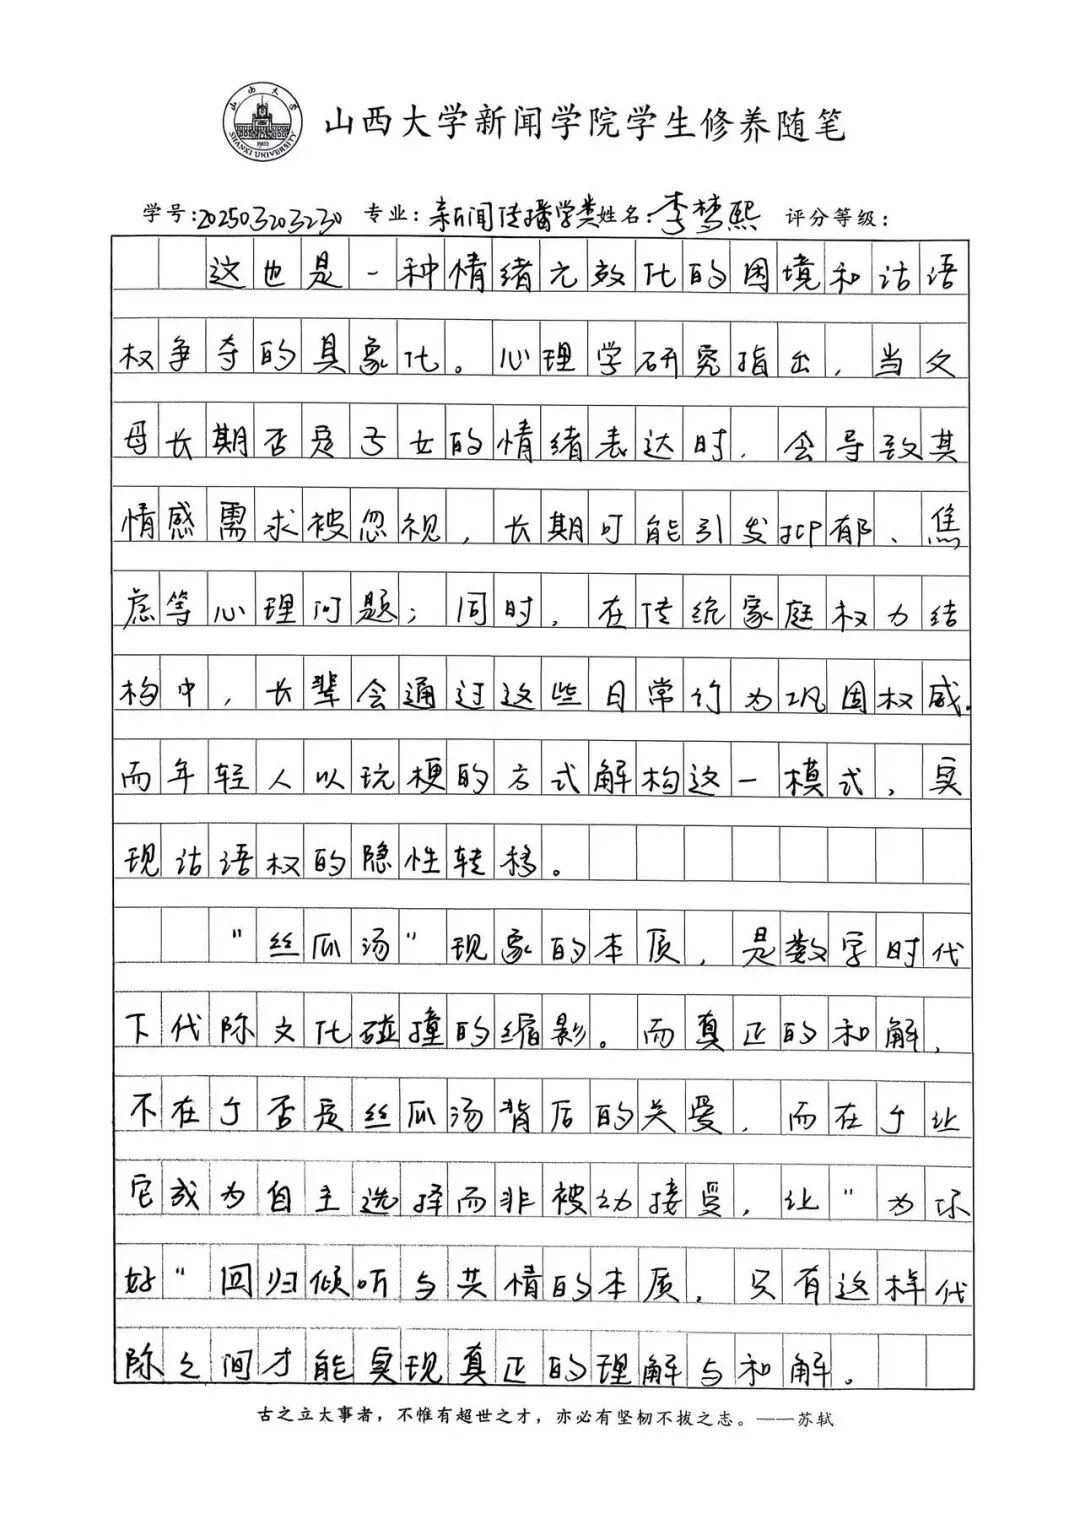 山西大学
SHANXI UNIVERSITY
1902
山西大学新闻学院学生修养随笔
学号:202503203230 专业:新闻传播学类 姓名:李梦熙 评分等级:
这也是一种情绪无效化的困境和话语
权争夺的具象化。心理学研究指出，当父
母长期否定子女的情绪表达时，会导致其
情感需求被忽视，长期可能引发抑郁、焦
虑等心理问题；同时，在传统家庭权力结
构中，长辈会通过这些日常行为巩固权威。
而年轻人以玩梗的方式解构这一模式，实
现话语权的隐性转移。
“丝瓜汤”现象的本质，是数字时代
下代际文化碰撞的缩影。而真正的和解，
不在于否定丝瓜汤背后的关爱，而在于让
它成为自主选择而非被动接受，让“为你
好“回归倾听与共情的本质，只有这样代
际之间才能实现真正的理解与和解。
古之立大事者，不惟有超世之才，亦必有坚韧不拔之志。——苏轼